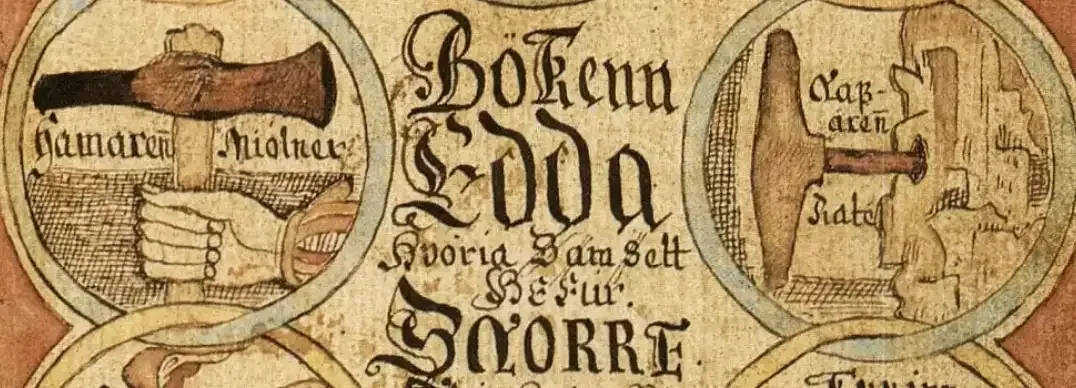 Hamaren̄ Miölner
Bökenn
Edda
Hvöria Samsett
Hefur.
SNORRE
Naf-
aren̄
Rate